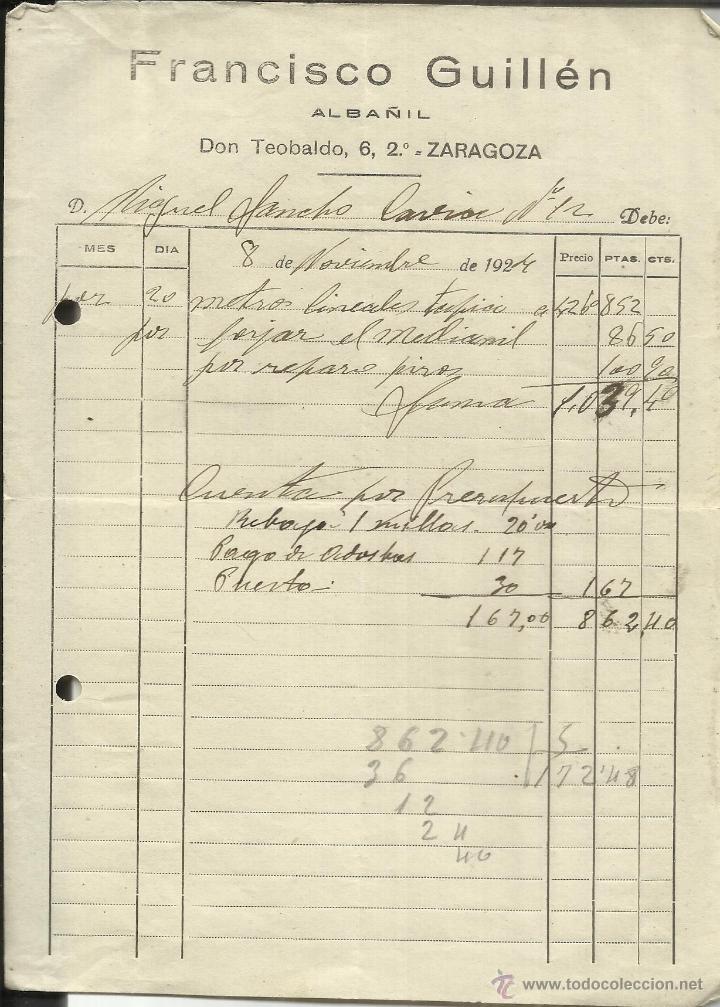 Francisco Guillén
ALBAÑIL
Don Teobaldo, 6, 2.º - ZARAGOZA
D. Miguel Sancho Nº 12 Debe:
MES DIA 8 de Noviembre de 1924 Precio PTAS. CTS.
por 20 metros lineales tapia a 426 852
por forjar el Medianil 86 50
por reparo pisos 100 90
Suma 1,039,40
Cuenta por Presupuesto
Rebaja 20'00
Pago de 117
Puerta: 30 167
167,00 862,40
862'40 5
36 172'48
12
24
40
www.todocoleccion.net